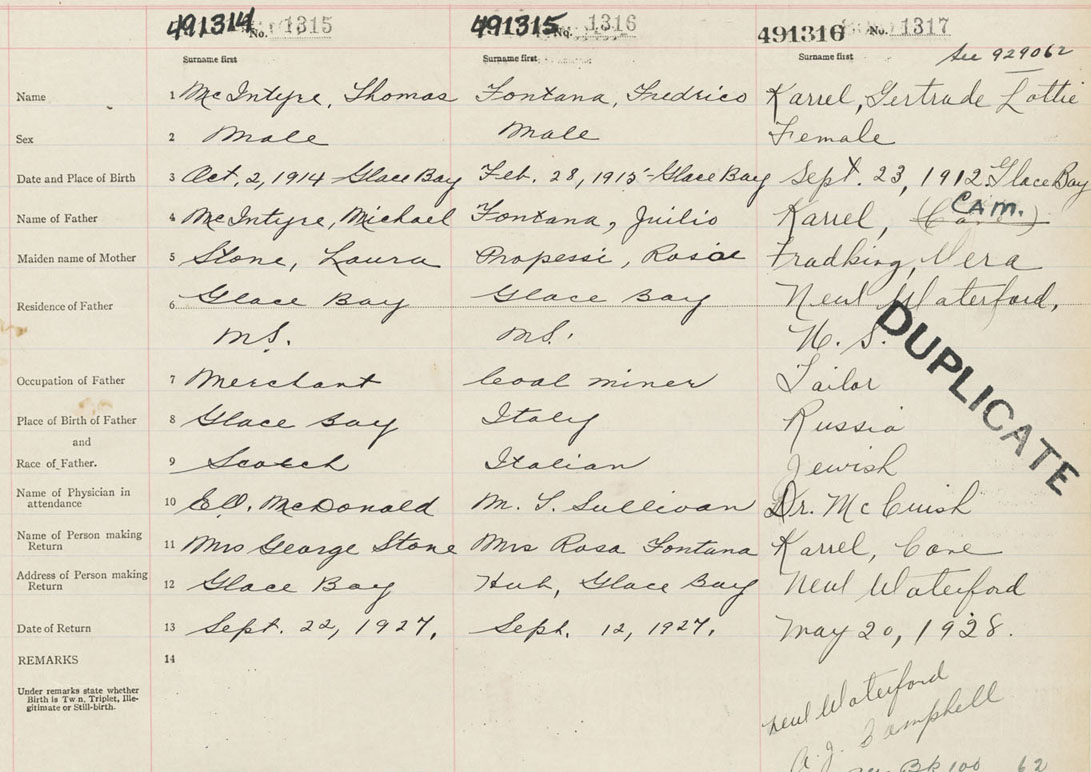 491314 No. 1315 491315 No. 1316 491316 No. 1317
Surname first Surname first Surname first See 929062
Name 1 McIntyre, Thomas Fontana, Fredrico Karrel, Gertrude Lottie
Sex 2 Male Male Female
Date and Place of Birth 3 Oct. 2, 1914 Glace Bay Feb. 28, 1915 - Glace Bay Sept. 23, 1912. Glace Bay
Name of Father 4 McIntyre, Michael Fontana, Juilio Karrel, CAM.
Maiden name of Mother 5 Stone, Laura Propessi, Rosie Fradking, Vera
Residence of Father 6 Glace Bay Glace Bay New Waterford,
N.S. N.S. N.S.
DUPLICATE
Occupation of Father 7 Merchant Coal miner Tailor
Place of Birth of Father 8 Glace Bay Italy Russia
and
Race of Father. 9 Scotch Italian Jewish
Name of Physician in attendance 10 E.O. McDonald M. T. Sullivan Dr. McCuish
Name of Person making Return 11 Mrs George Stone Mrs Rosa Fontana Karrel, Cane
Address of Person making Return 12 Glace Bay Hub, Glace Bay New Waterford
Date of Return 13 Sept. 22, 1927. Sept. 12, 1927. May 20, 1928.
REMARKS 14
Under remarks state whether
Birth is Twin, Triplet, Ille-
gitimate or Still-birth.
New Waterford
A. J. Campbell
Bk 100 62